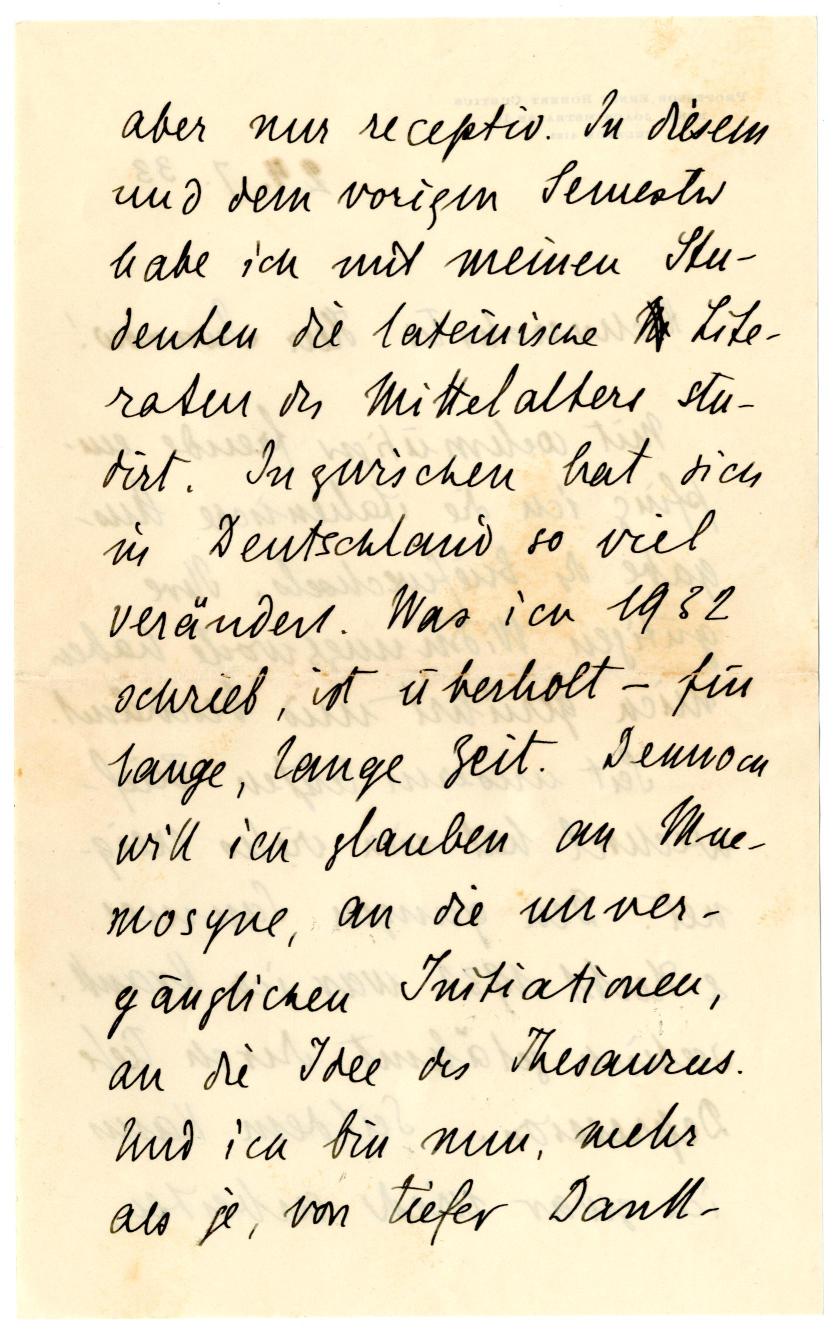 aber nur receptiv. In diesem
und dem vorigen Semester
habe ich mit meinen Stu-
denten die lateinische Lite-
ratur des Mittelalters stu-
dirt. Inzwischen hat sich
in Deutschland so viel
verändert. Was ich 1932
schrieb, ist überholt – für
lange, lange Zeit. Dennoch
will ich glauben an Mne-
mosyne, an die unver-
gänglichen Initiationen,
an die Idee des Thesaurus.
Und ich bin nun, mehr
als je, von tiefer Dank-